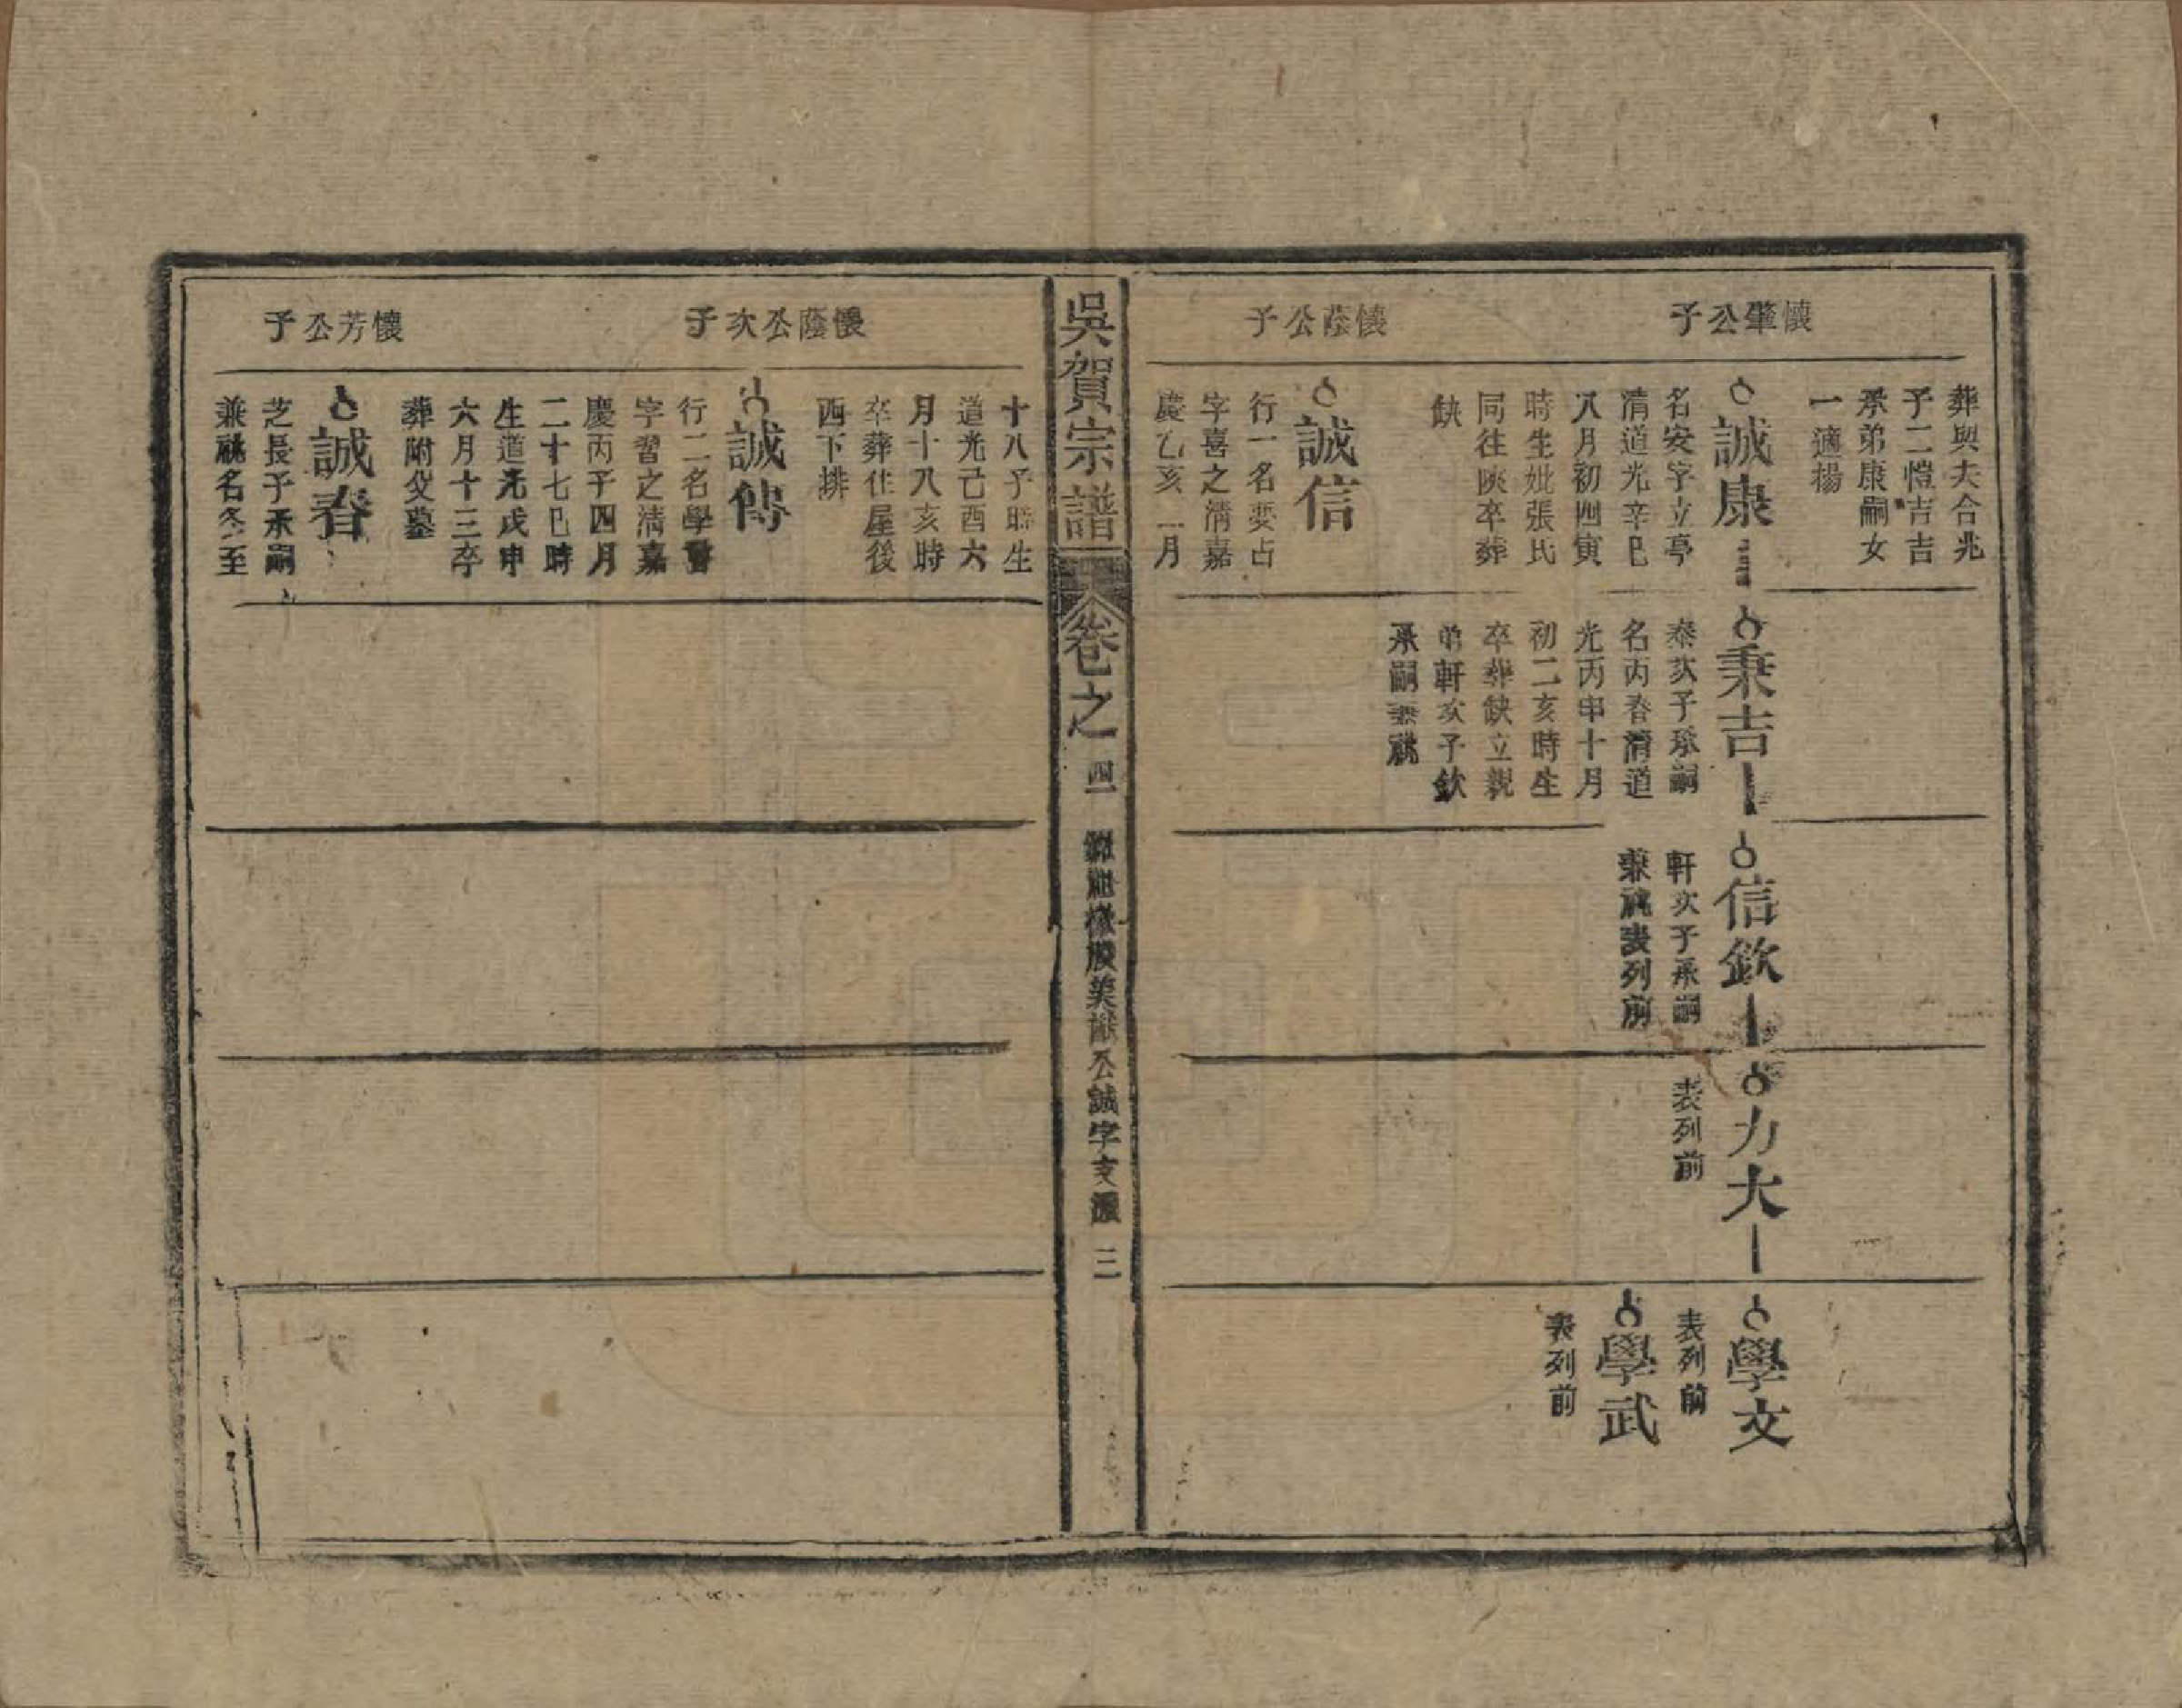 懷肇公子
葬與夫合兆
子二愷吉吉
承弟康嗣女
一適楊
誠康
名安字立亭
清道光辛巳
八月初四寅
時生妣張氏
同往陝卒葬
缺
秉吉
泰次子承嗣
名丙春清道
光丙申十月
初二亥時生
卒葬缺立親
弟軒次子欽
承嗣兼祧
信欽
軒次子承嗣
兼祧表列前
力大
表列前
學文
表列前
學武
表列前
懷蔭公子
誠信
行一名要占
字喜之清嘉
慶乙亥二月
吳賀宗譜
卷之一
四
公誠字支
三
十八子時生
道光己酉六
月十八亥時
卒葬住屋後
西下排
懷蔭公次子
誠傳
行二名學習
字習之清嘉
慶丙子四月
二十七巳時
生道光戊申
六月十三卒
葬附父墓
懷芳公子
誠春
芝長子承嗣
兼祧名冬至